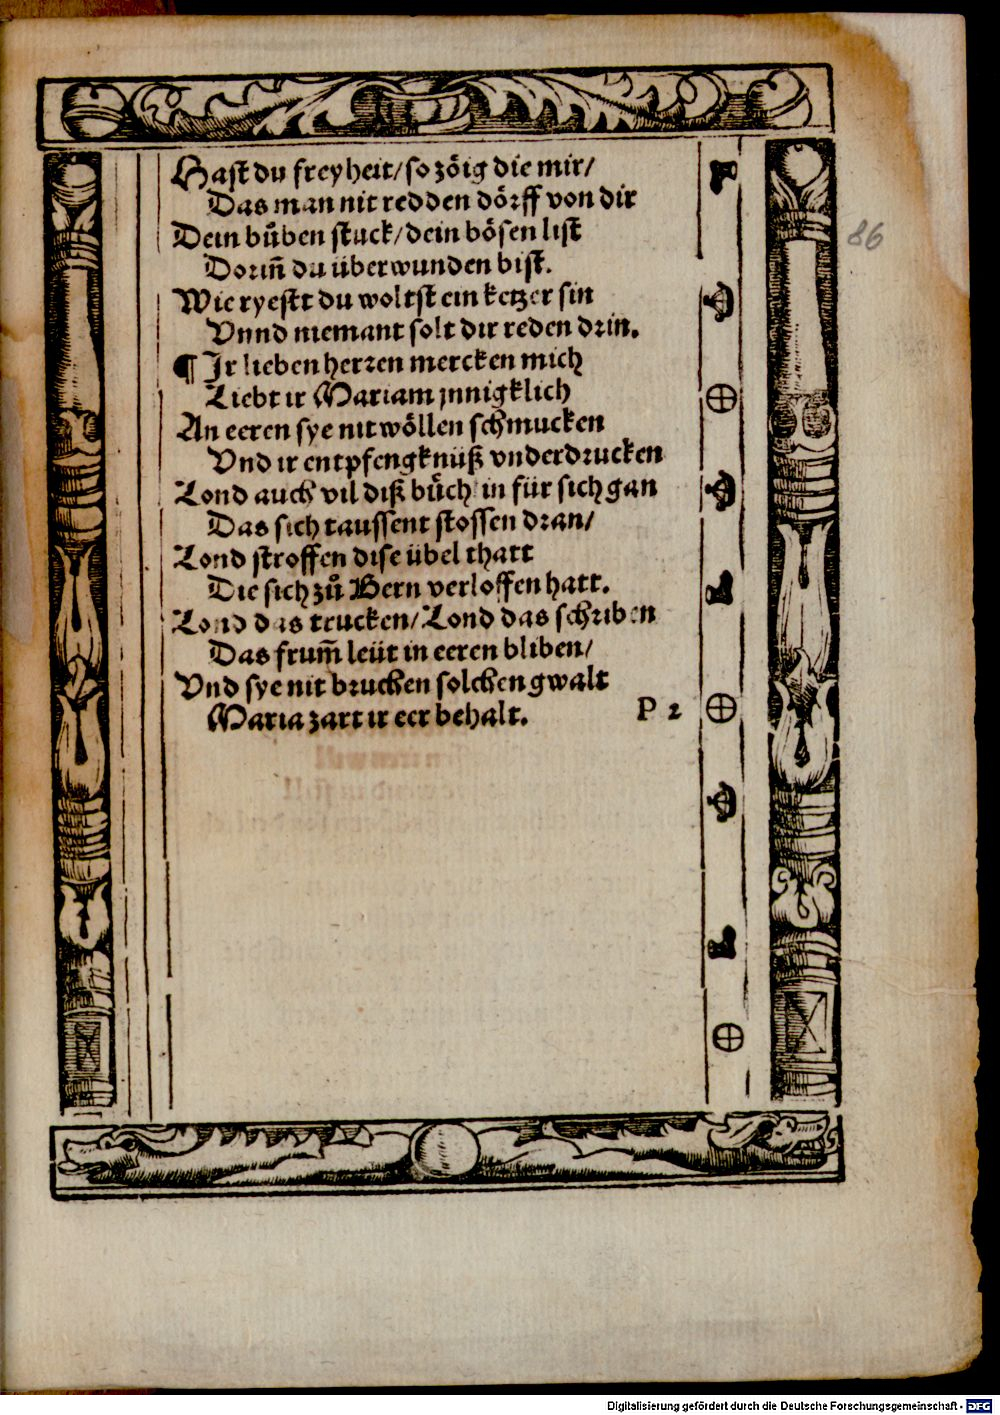 Hast du freyheit/so zöig die mir/
Das man nit redden dörff von dir
Dein bu̎ben stuck/dein bösen list
Dorin̄ du überwunden bist.
Wie ryestt du woltst ein ketzer sin
Vnnd niemant solt dir reden drin.
¶ Jr lieben herren mercken mich
Liebt ir Mariam jnnigklich
An eeren sye nit wöllen schmucken
Vnd ir entpfengknüß vnderdrucken
Lond auch vil diß bu̎chlin für sich gan
Das sich taussent stossen dran/
Lond stroffen dise übel thatt
Die sich zů Bern verloffen hatt.
Lond das trucken/Lond das schriben
Das frum̄ leüt in eeren bliben/
Vnd sye nit bruchen solchen gwalt
Maria zart ir eer behalt. P 2
86
Digitalisierung gefördert durch die Deutsche Forschungsgemeinschaft - DFG